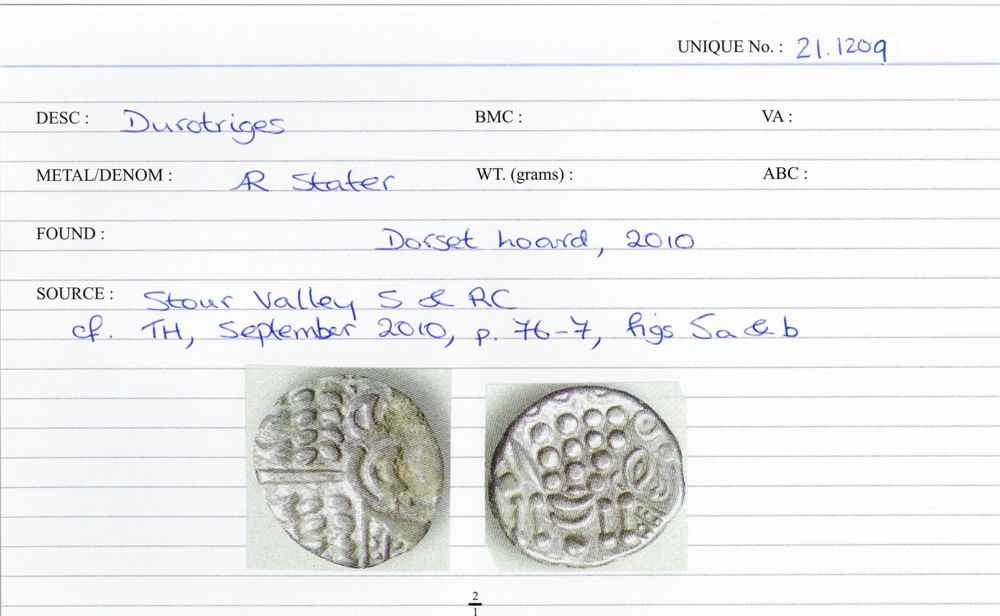 UNIQUE No. : 21.1209
DESC : Durotriges BMC : VA :
METAL/DENOM : AR Stater WT. (grams) : ABC :
FOUND : Dorset hoard, 2010
SOURCE : Stour Valley S & RC
cf. TH, September 2010, p. 76-7, figs 5a & b
2
1